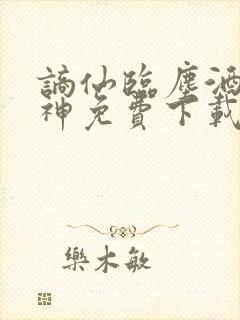 謫仙臨塵酒
神免費下載
樂木敏